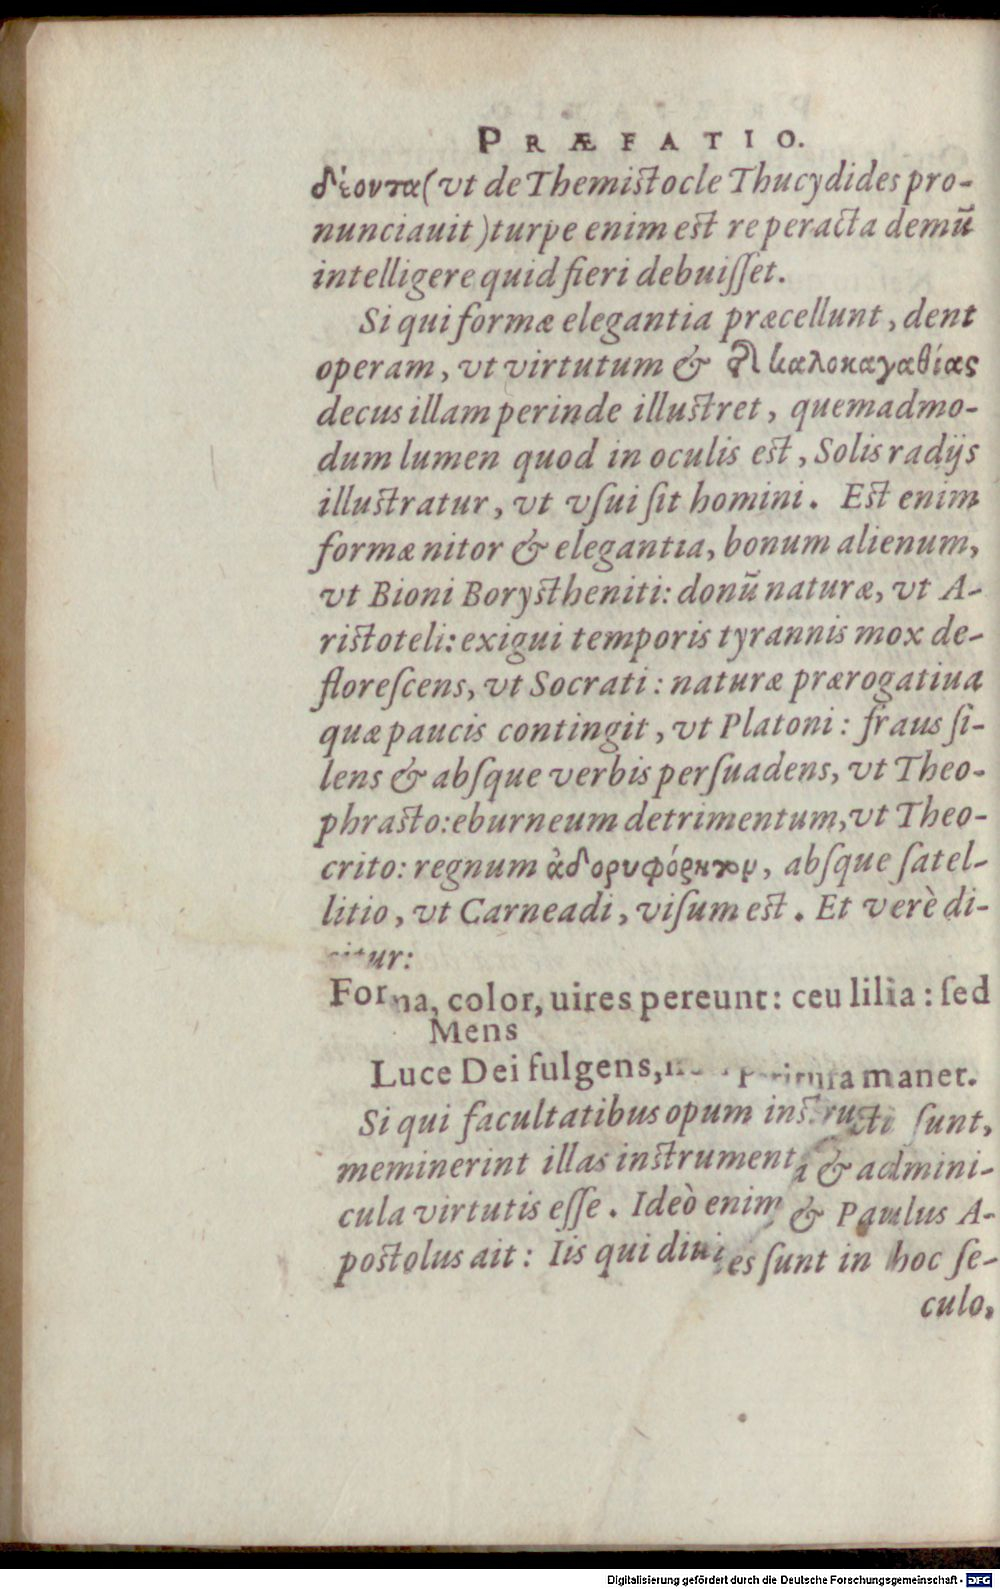 PRÆFATIO.
δέοντα (vt de Themistocle Thucydides pro-
nunciauit) turpe enim est re peracta demũ
intelligere quid fieri debuiſſet.
Si qui formæ elegantia præcellunt, dent
operam, vt virtutum & καλοκαγαθίας
decus illam perinde illustret, quemadmo-
dum lumen quod in oculis est, Solis radijs
illustratur, vt vſui ſit homini. Est enim
formæ nitor & elegantia, bonum alienum,
vt Bioni Borystheniti: donũ naturæ, vt A-
ristoteli: exigui temporis tyrannis mox de-
floreſcens, vt Socrati: naturæ prærogatiua
quæ paucis contingit, vt Platoni: fraus ſi-
lens & abſque verbis perſuadens, vt Theo-
phrasto: eburneum detrimentum, vt Theo-
crito: regnum ἀδορυφόρητον, abſque ſatel-
litio, vt Carneadi, viſum est. Et verè di-
citur:
Forma, color, uires pereunt: ceu lilia: ſed
Mens
Luce Dei fulgens, maner.
Si qui facultatibus opum instructi ſunt,
meminerint illas instrumenta & admini-
cula virtutis eſſe. Ideò enim & Paulus A-
postolus ait: Iis qui diuites ſunt in hoc ſe-
culo,
Digitalisierung gefördert durch die Deutsche Forschungsgemeinschaft - DFG